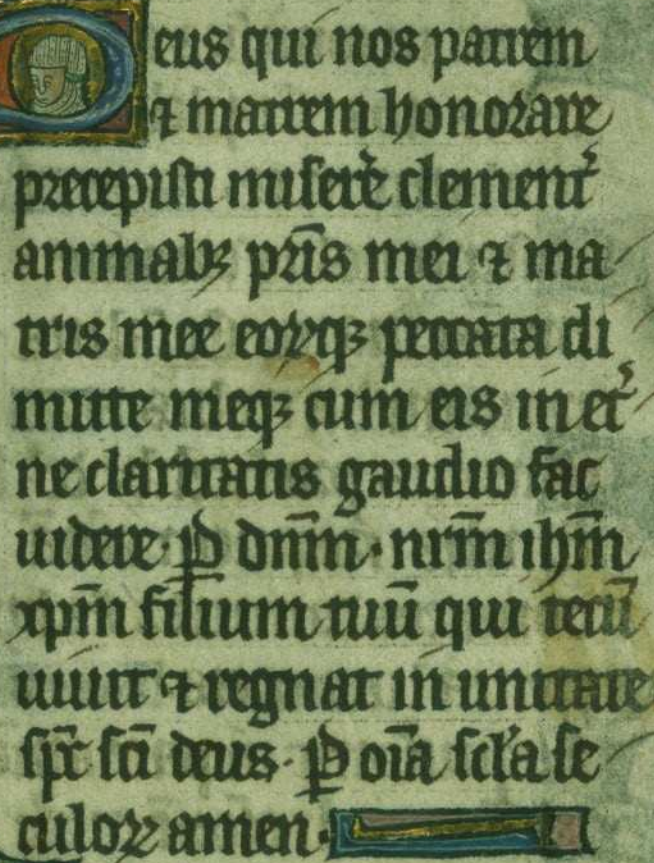 Deus qui nos patrem
⁊ matrem honorare
precepisti miserẻ clement᷑
animabꝫ pr̄is mei ⁊ ma
tris mee eoꝝqꝫ peccata di
mitte meqꝫ cum eis in et᷑
ne claritatis gaudio fac
uidere· ꝑ dn̄m· nr̄m ihm̄
xpm̄ filium tuū qui tecū
uiuit ⁊ regnat in unitate
sp̄c sc̄i deus· ꝑ oīa scl̓a se
culoꝝ amen·